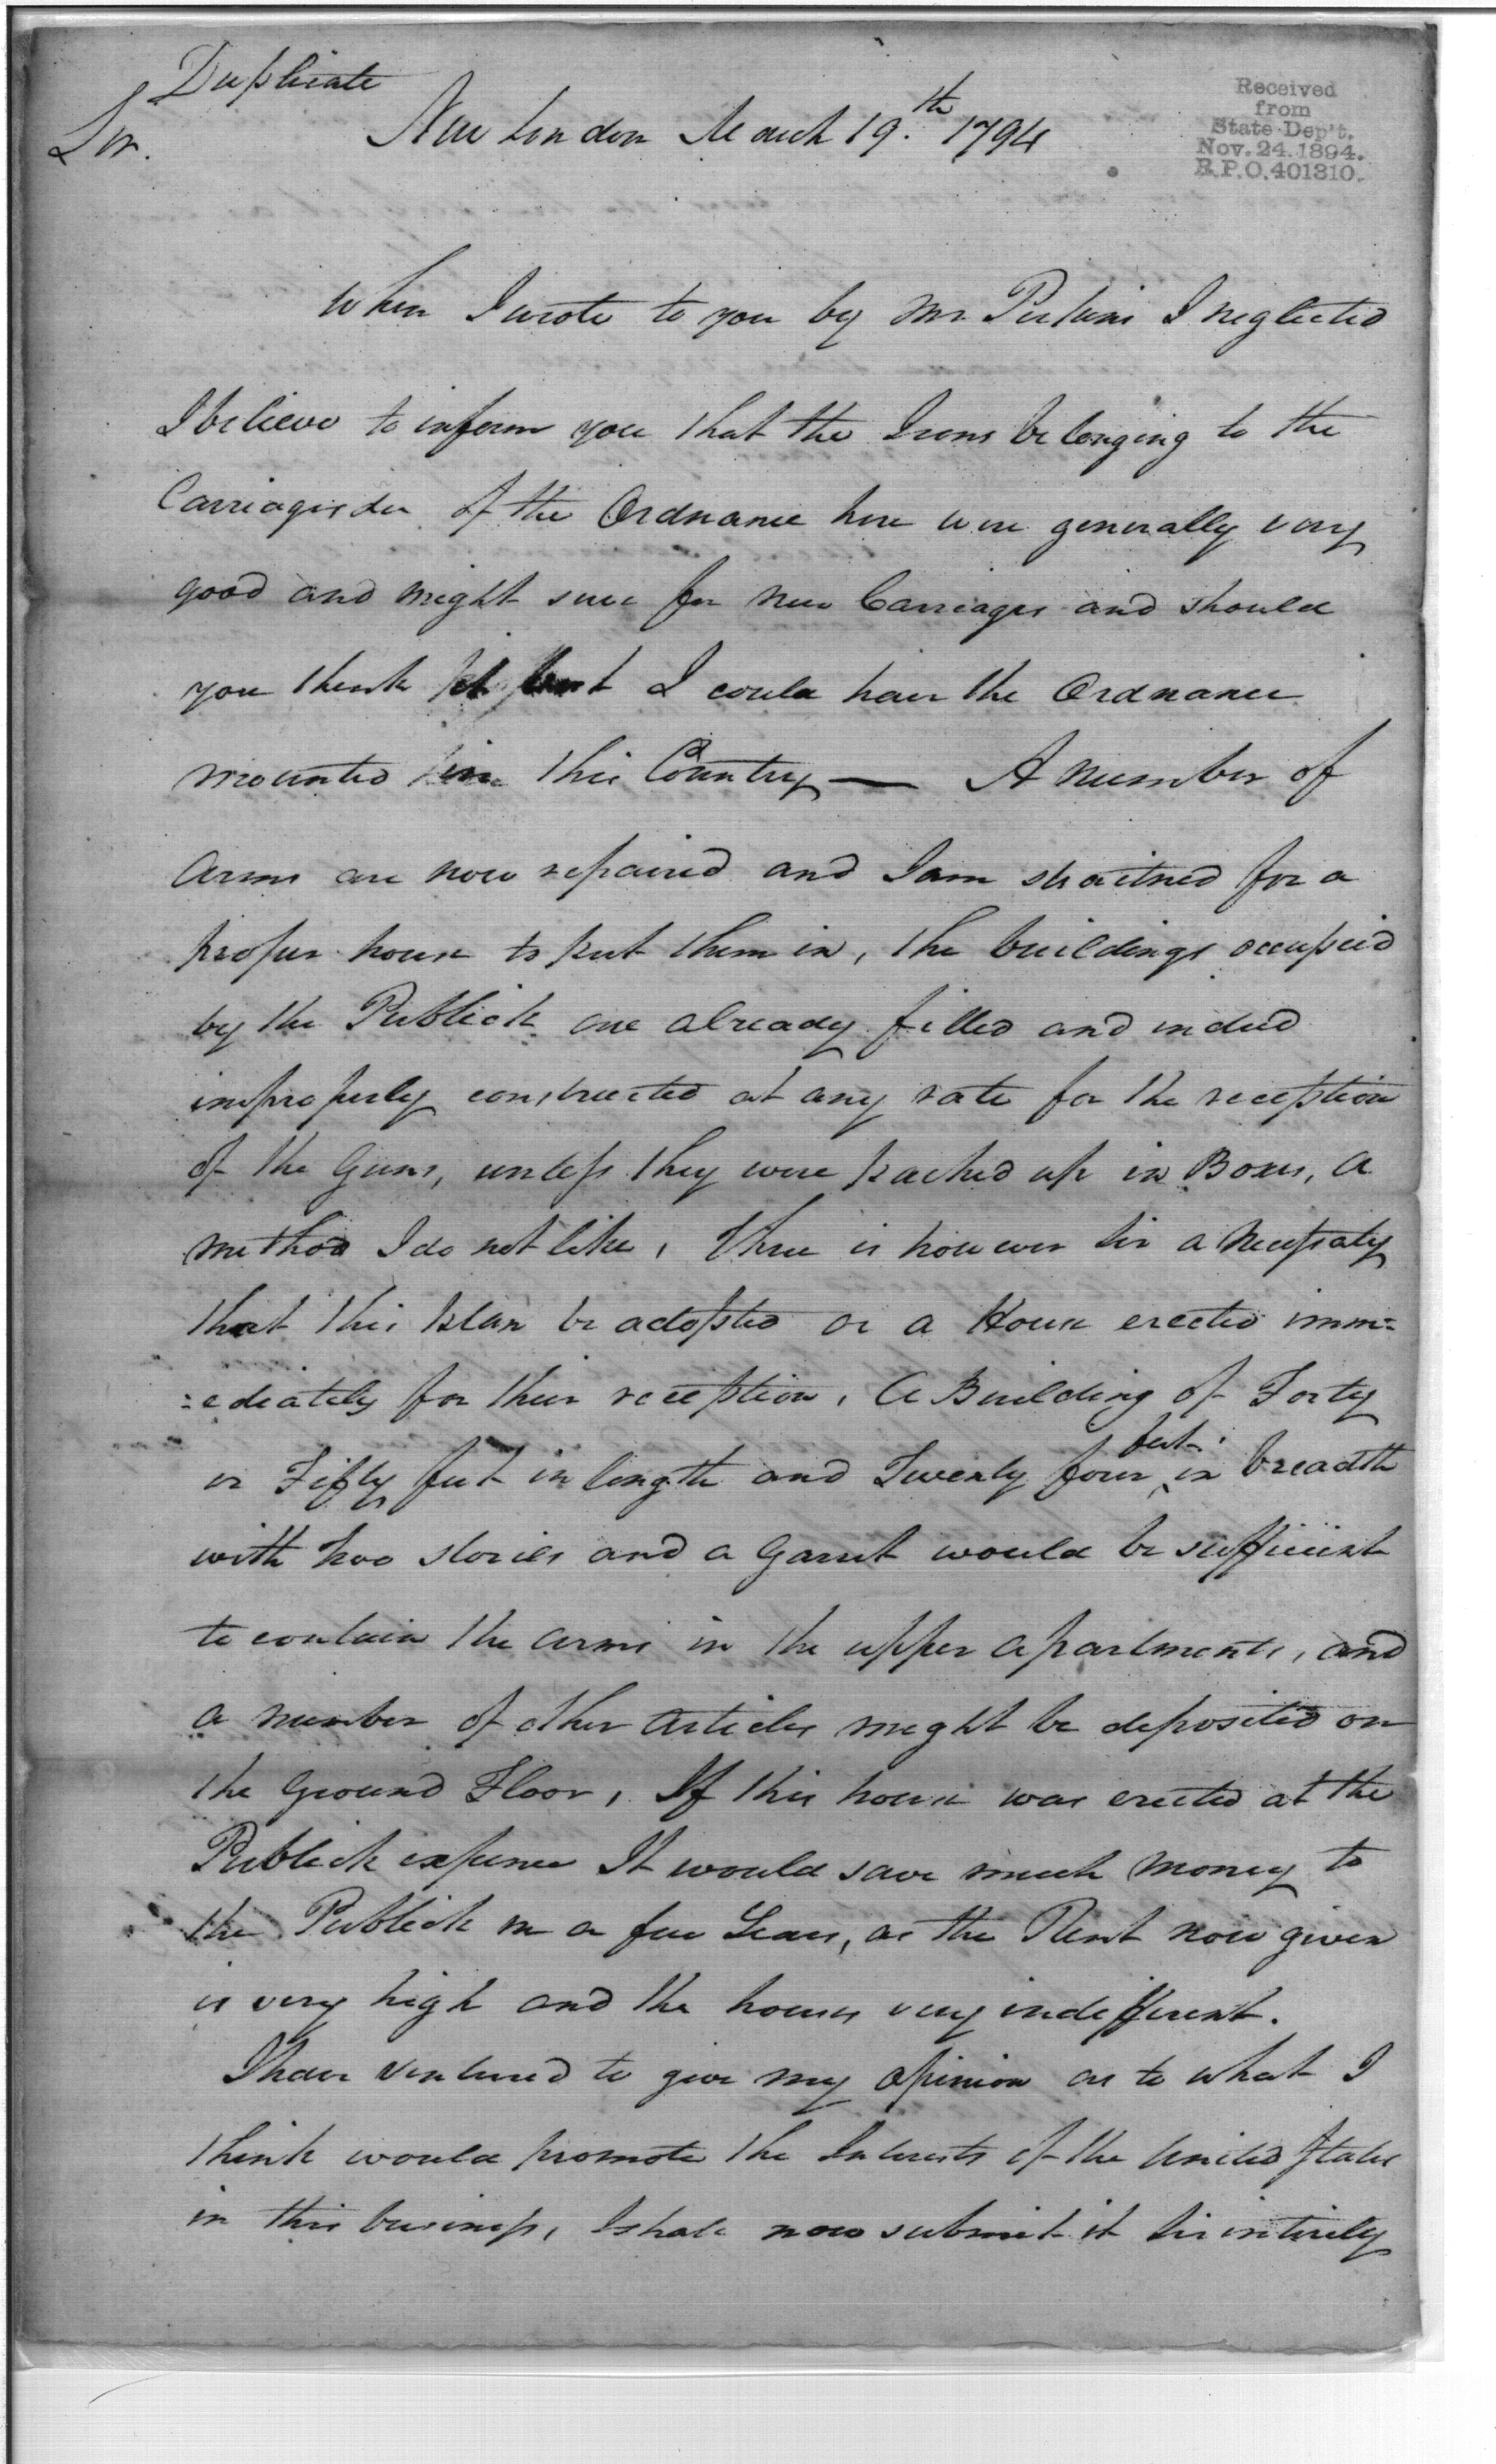 Duplicate
Sir.
New London March 19.th 1794
Received
from
State Dep't.
Nov. 24. 1894.
R.P.O. 401310.
When I wrote to you by Mr. Perkins I neglected
I believe to inform you that the Irons belonging to the
Carriages &c of the Ordnance here were generally very
good and might serve for new Carriages and should
you think I could have the Ordnance
mounted in this Country — A number of
Arms are now repaired and I am straitned for a
proper house to put them in, the buildings occupied
by the Publick are already filled and indeed
improperly constructed at any rate for the reception
of the Guns, unless they were packed up in Boxes, a
method I do not like, there is however Sir a necessaty
that this plan be adopted or a House erected imm=
=ediately for their reception, A Building of Forty
or Fifty feet in length and Twenty four feet in breadth
with two stories and a Garret would be sufficient
to contain the arms in the upper apartments, and
a number of other articles might be deposited on
the Ground Floor, If this house was erected at the
Publick expence It would save much money to
the Publick in a few Years, as the Rent now given
is very high and the houses very indifferent.
I have ventured to give my opinion as to what I
think would promote the Interests of the United States
in this business, I shall now submit it Sir intirely